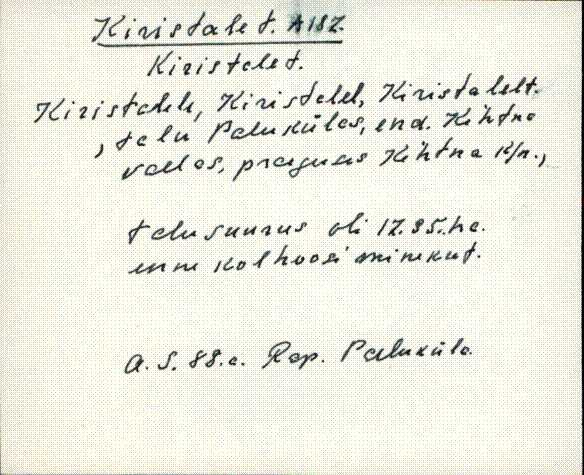 Kiristalet. A182.
Kiristelet.
Kiristalele, Kiristelel, Kiristalelt.
, talu Palukülas, end. Kehtna
vallas, praegusės Kehtna K/n.,
talu suurus oli 17.95. ha.
enne kolhoosi minekut.
A. S. 88.a. Rap. Paluküla.